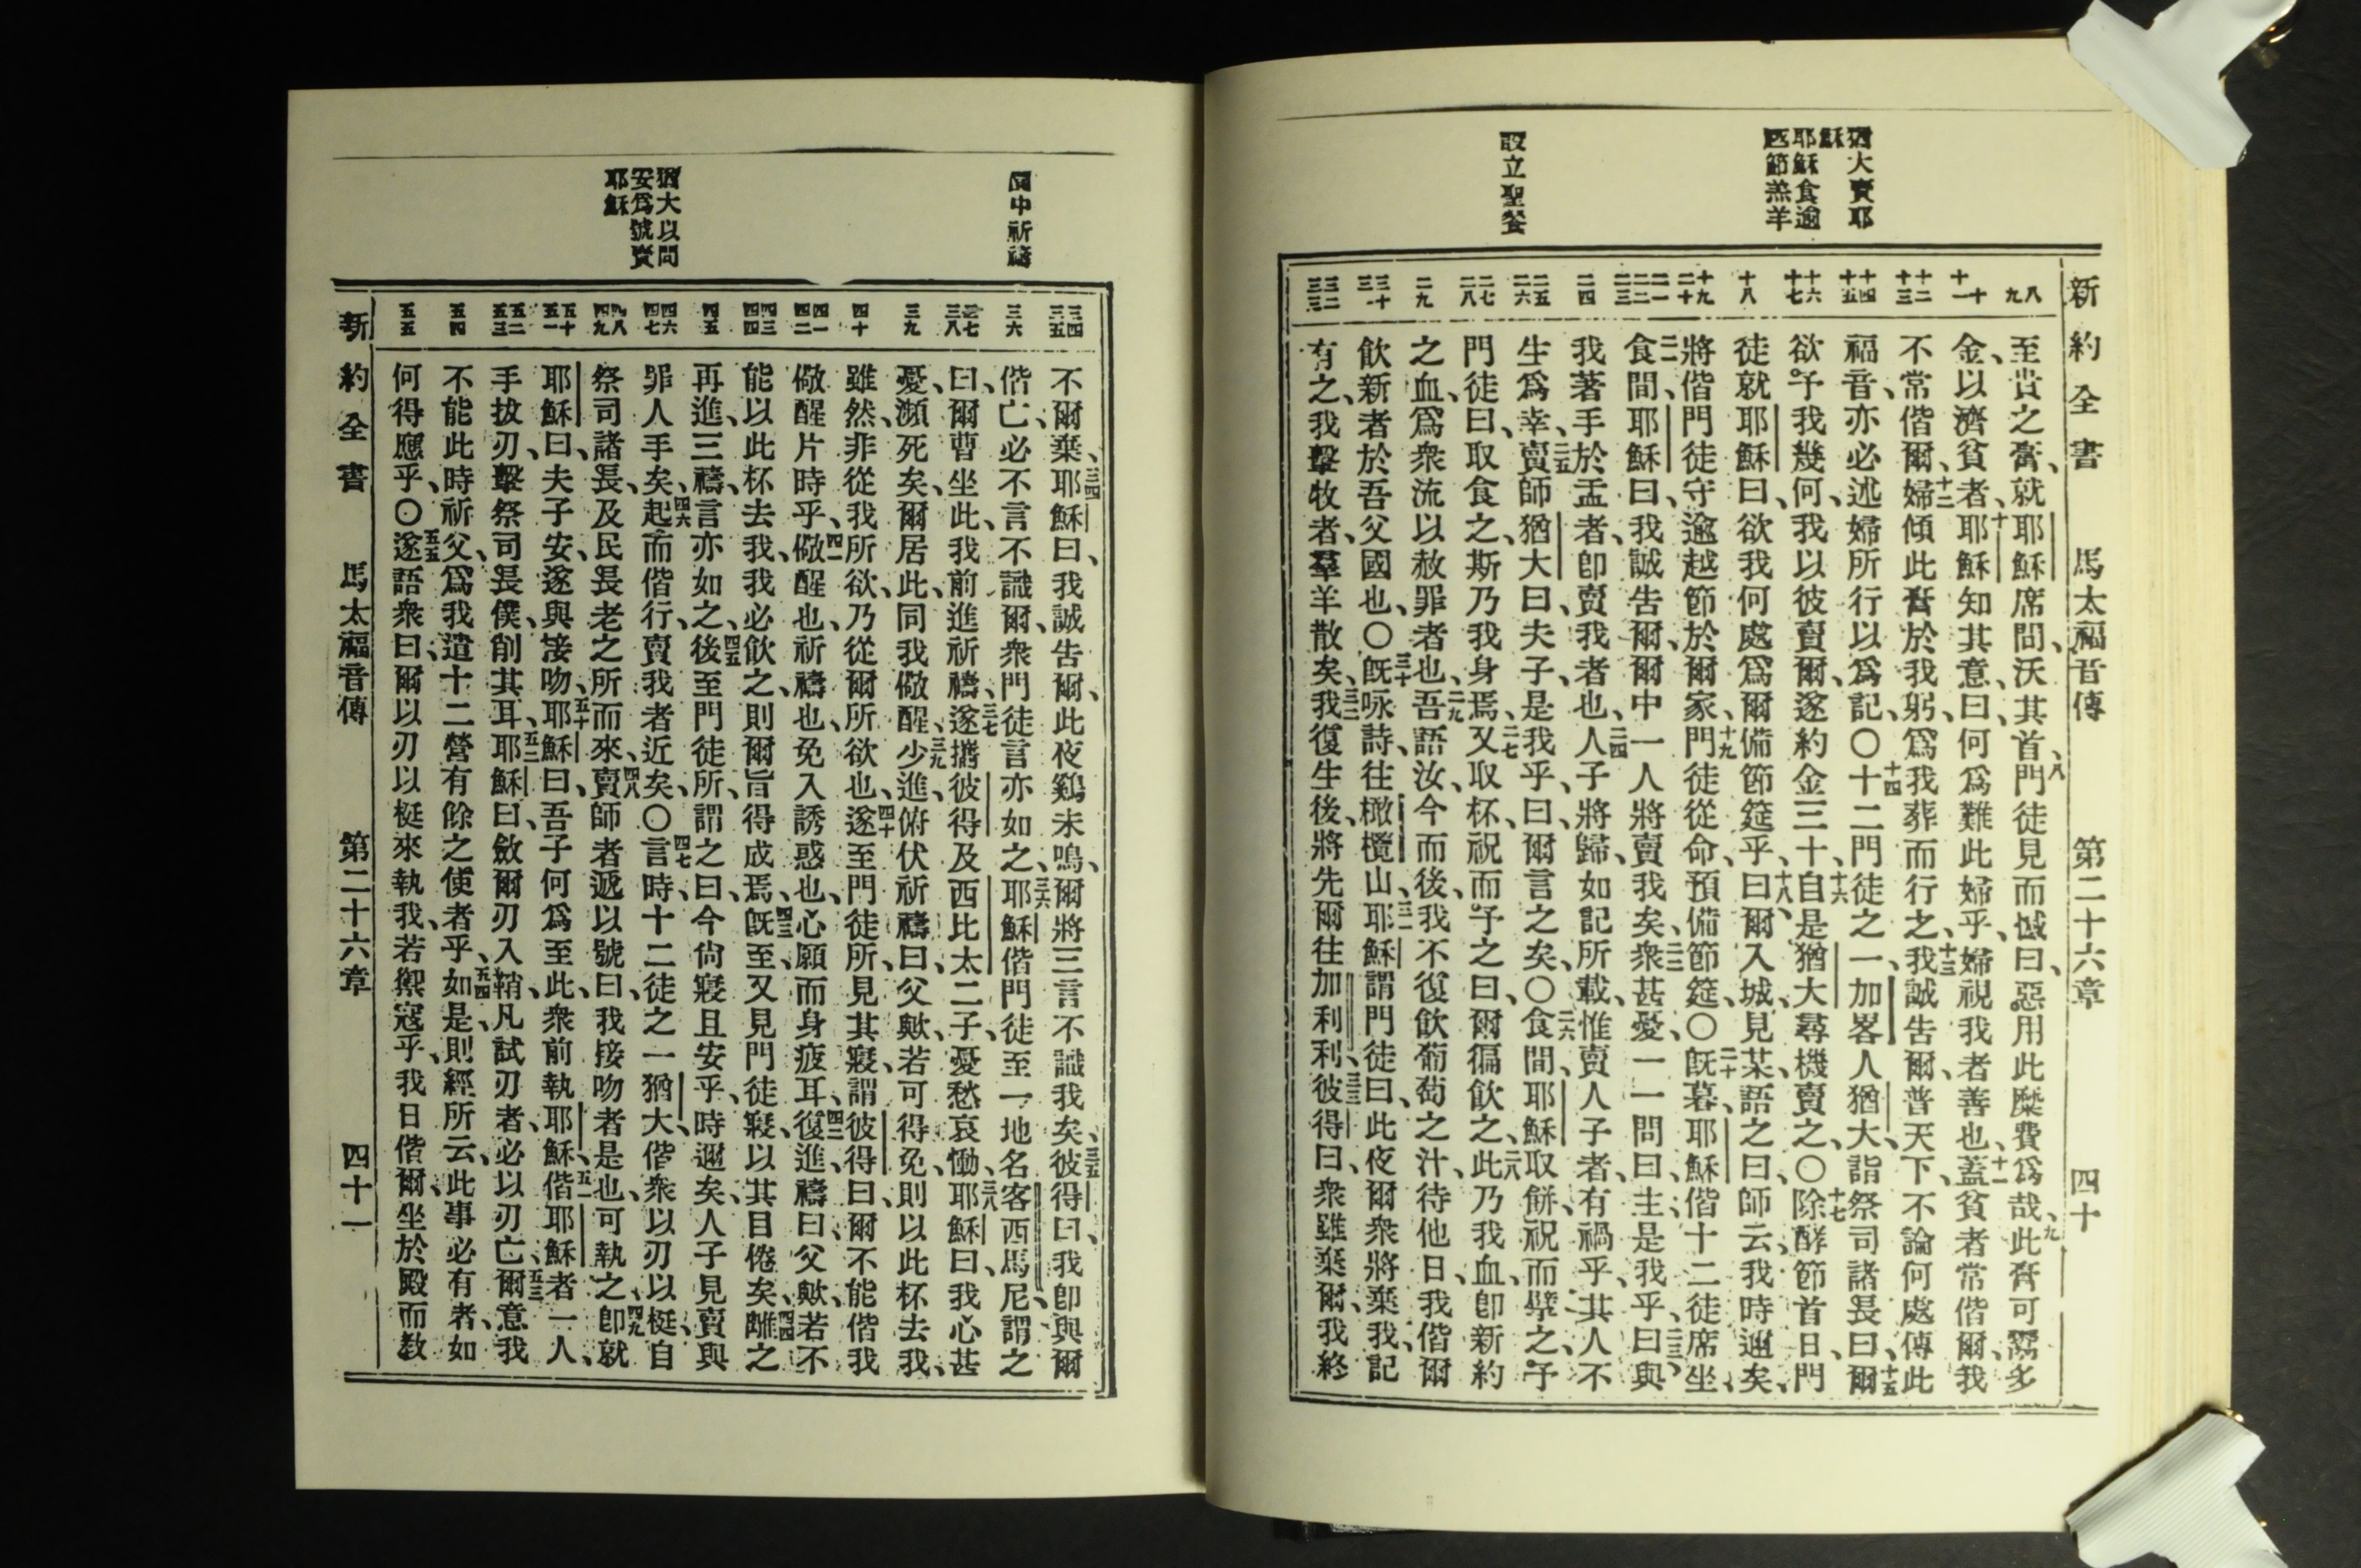 新約全書 馬太福音傳 第二十六章 四十
猶大賣耶
穌
耶穌食逾
越節羔羊
設立聖餐
八
九
十
十一
十二
十三
十四
十五
十六
十七
十八
十九
二十
二一
二二
二三
二四
二五
二六
二七
二八
二九
三十
三一
三二
三三
至貴之膏、就耶穌席間、沃其首、八門徒見而憾曰、惡用此糜費爲哉、九此膏可鬻多
金、以濟貧者、十耶穌知其意、曰、何爲難此婦乎、婦視我者善也、十一蓋貧者常偕爾、我
不常偕爾、十二婦傾此膏於我躬、爲我葬而行之、十三我誠告爾、普天下、不論何處傳此
福音、亦必述婦所行以爲記、〇十四十二門徒之一、加畧人猶大、詣祭司諸長曰、十五爾
欲予我幾何、我以彼賣爾、遂約金三十、十六自是猶大尋機賣之、〇十七除酵節首日、門
徒就耶穌曰、欲我何處爲爾備節筵乎、十八曰、爾入城、見某、語之曰、師云、我時邇矣、
將偕門徒守逾越節於爾家、十九門徒從命、預備節筵、〇二十旣暮、耶穌偕十二徒席坐、
二一食間、耶穌曰、我誠告爾、爾中一人將賣我矣、二二衆甚憂、一一問曰、主、是我乎、二三曰、與
我著手於盂者、卽賣我者也、二四人子將歸、如記所載、惟賣人子者、有禍乎、其人不
生爲幸、二五賣師猶大曰、夫子、是我乎、曰、爾言之矣、〇二六食間、耶穌取餅、祝而擘之、予
門徒曰、取食之、斯乃我身焉、二七又取杯、祝而予之曰、爾徧飲之、二八此乃我血、卽新約
之血、爲衆流以赦罪者也、二九吾語汝、今而後、我不復飲葡萄之汁、待他日、我偕爾
飲新者於吾父國也、〇三十旣咏詩、往橄欖山、三一耶穌謂門徒曰、此夜爾衆將棄我、記
有之、我擊牧者、羣羊散矣、三二我復生後、將先爾往加利利、三三彼得曰、衆雖棄爾、我終
園中祈禱
猶大以問
安爲號賣
耶穌
三四
三五
三六
三七
三八
三九
四十
四一
四二
四三
四四
四五
四六
四七
四八
四九
五十
五一
五二
五三
五四
五五
不爾棄、三四耶穌曰、我誠告爾、此夜鷄未鳴、爾將三言不識我矣、三五彼得曰、我卽與爾
偕亡、必不言不識爾、衆門徒言亦如之、三六耶穌偕門徒至一地、名客西馬尼、謂之
曰、爾曹坐此、我前進祈禱、三七遂攜彼得及西比太二子、憂愁哀慟、三八耶穌曰、我心甚
憂、瀕死矣、爾居此、同我儆醒、三九少進、俯伏祈禱曰、父歟、若可得免、則以此杯去我、
雖然、非從我所欲、乃從爾所欲也、四十遂至門徒所、見其寢、謂彼得曰、爾不能偕我
儆醒片時乎、四一儆醒也、祈禱也、免入誘惑也、心願而身疲耳、四二復進、禱曰、父歟、若不
能以此杯去我、我必飲之、則爾旨得成焉、四三旣至、又見門徒寢、以其目倦矣、四四離之
再進、三禱、言亦如之、四五後至門徒所、謂之曰、今尙寢且安乎、時邇矣、人子見賣與
罪人手矣、四六起而偕行、賣我者近矣、〇四七言時、十二徒之一猶大、偕衆以刃以梃、自
祭司諸長、及民長老之所而來、四八賣師者遞以號曰、我接吻者是也、可執之、四九卽就
耶穌曰、夫子安、遂與接吻、五十耶穌曰、吾子何爲至此、衆前執耶穌、五一偕耶穌者一人、
手拔刃、擊祭司長僕、削其耳、五二耶穌曰、斂爾刃入鞘、凡試刃者、必以刃亡、五三爾意我
不能此時祈父、爲我遣十二營有餘之使者乎、五四如是、則經所云、此事必有者、如
何得應乎、〇五五遂語衆曰、爾以刃以梃來執我、若禦寇乎、我日偕爾、坐於殿而敎
新約全書 馬太福音傳 第二十六章 四十一